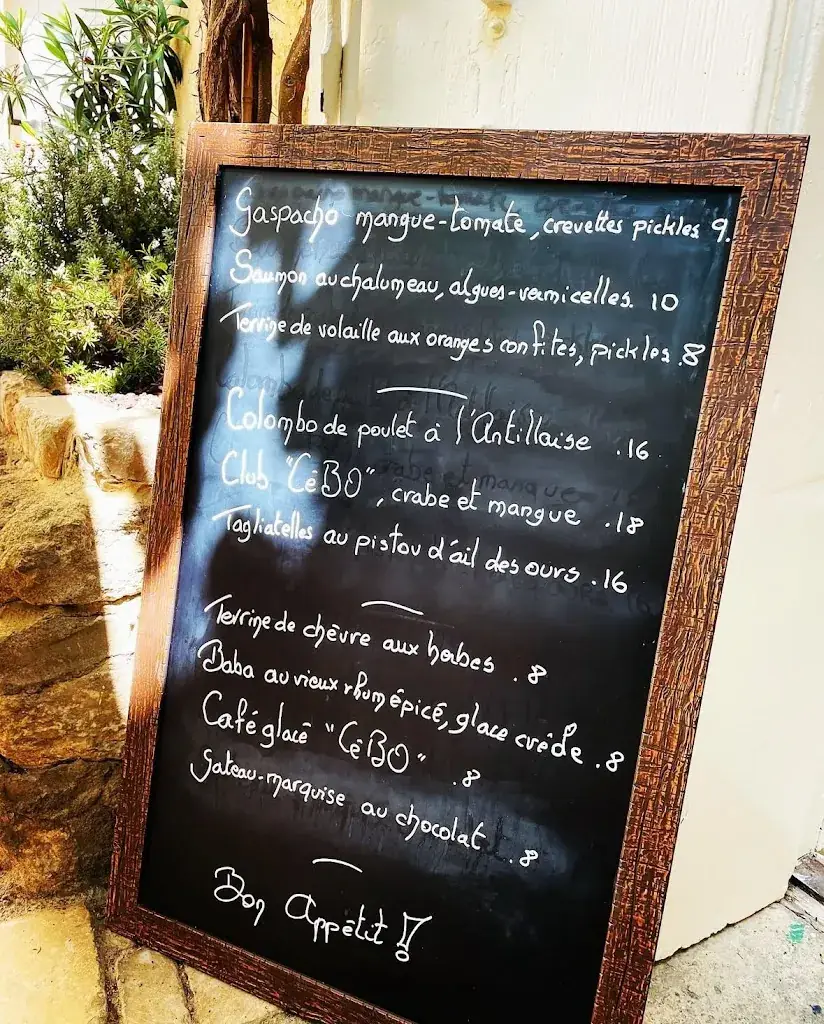 Gaspacho mangue-tomate, crevettes pickles 9.
Saumon au chalumeau, algues-vermicelles. 10
Terrine de volaille aux oranges confites, pickles. 8
Colombo de poulet à l'Antillaise .16
Club "CêBO", crabe et mangue .18
Tagliatelles au pistou d'ail des ours .16
Terrine de chèvre aux herbes .8
Baba au vieux rhum épicé, glace .8
Café glacé "CêBO" .8
Gateau-marquise au chocolat .8
Bon Appétit !